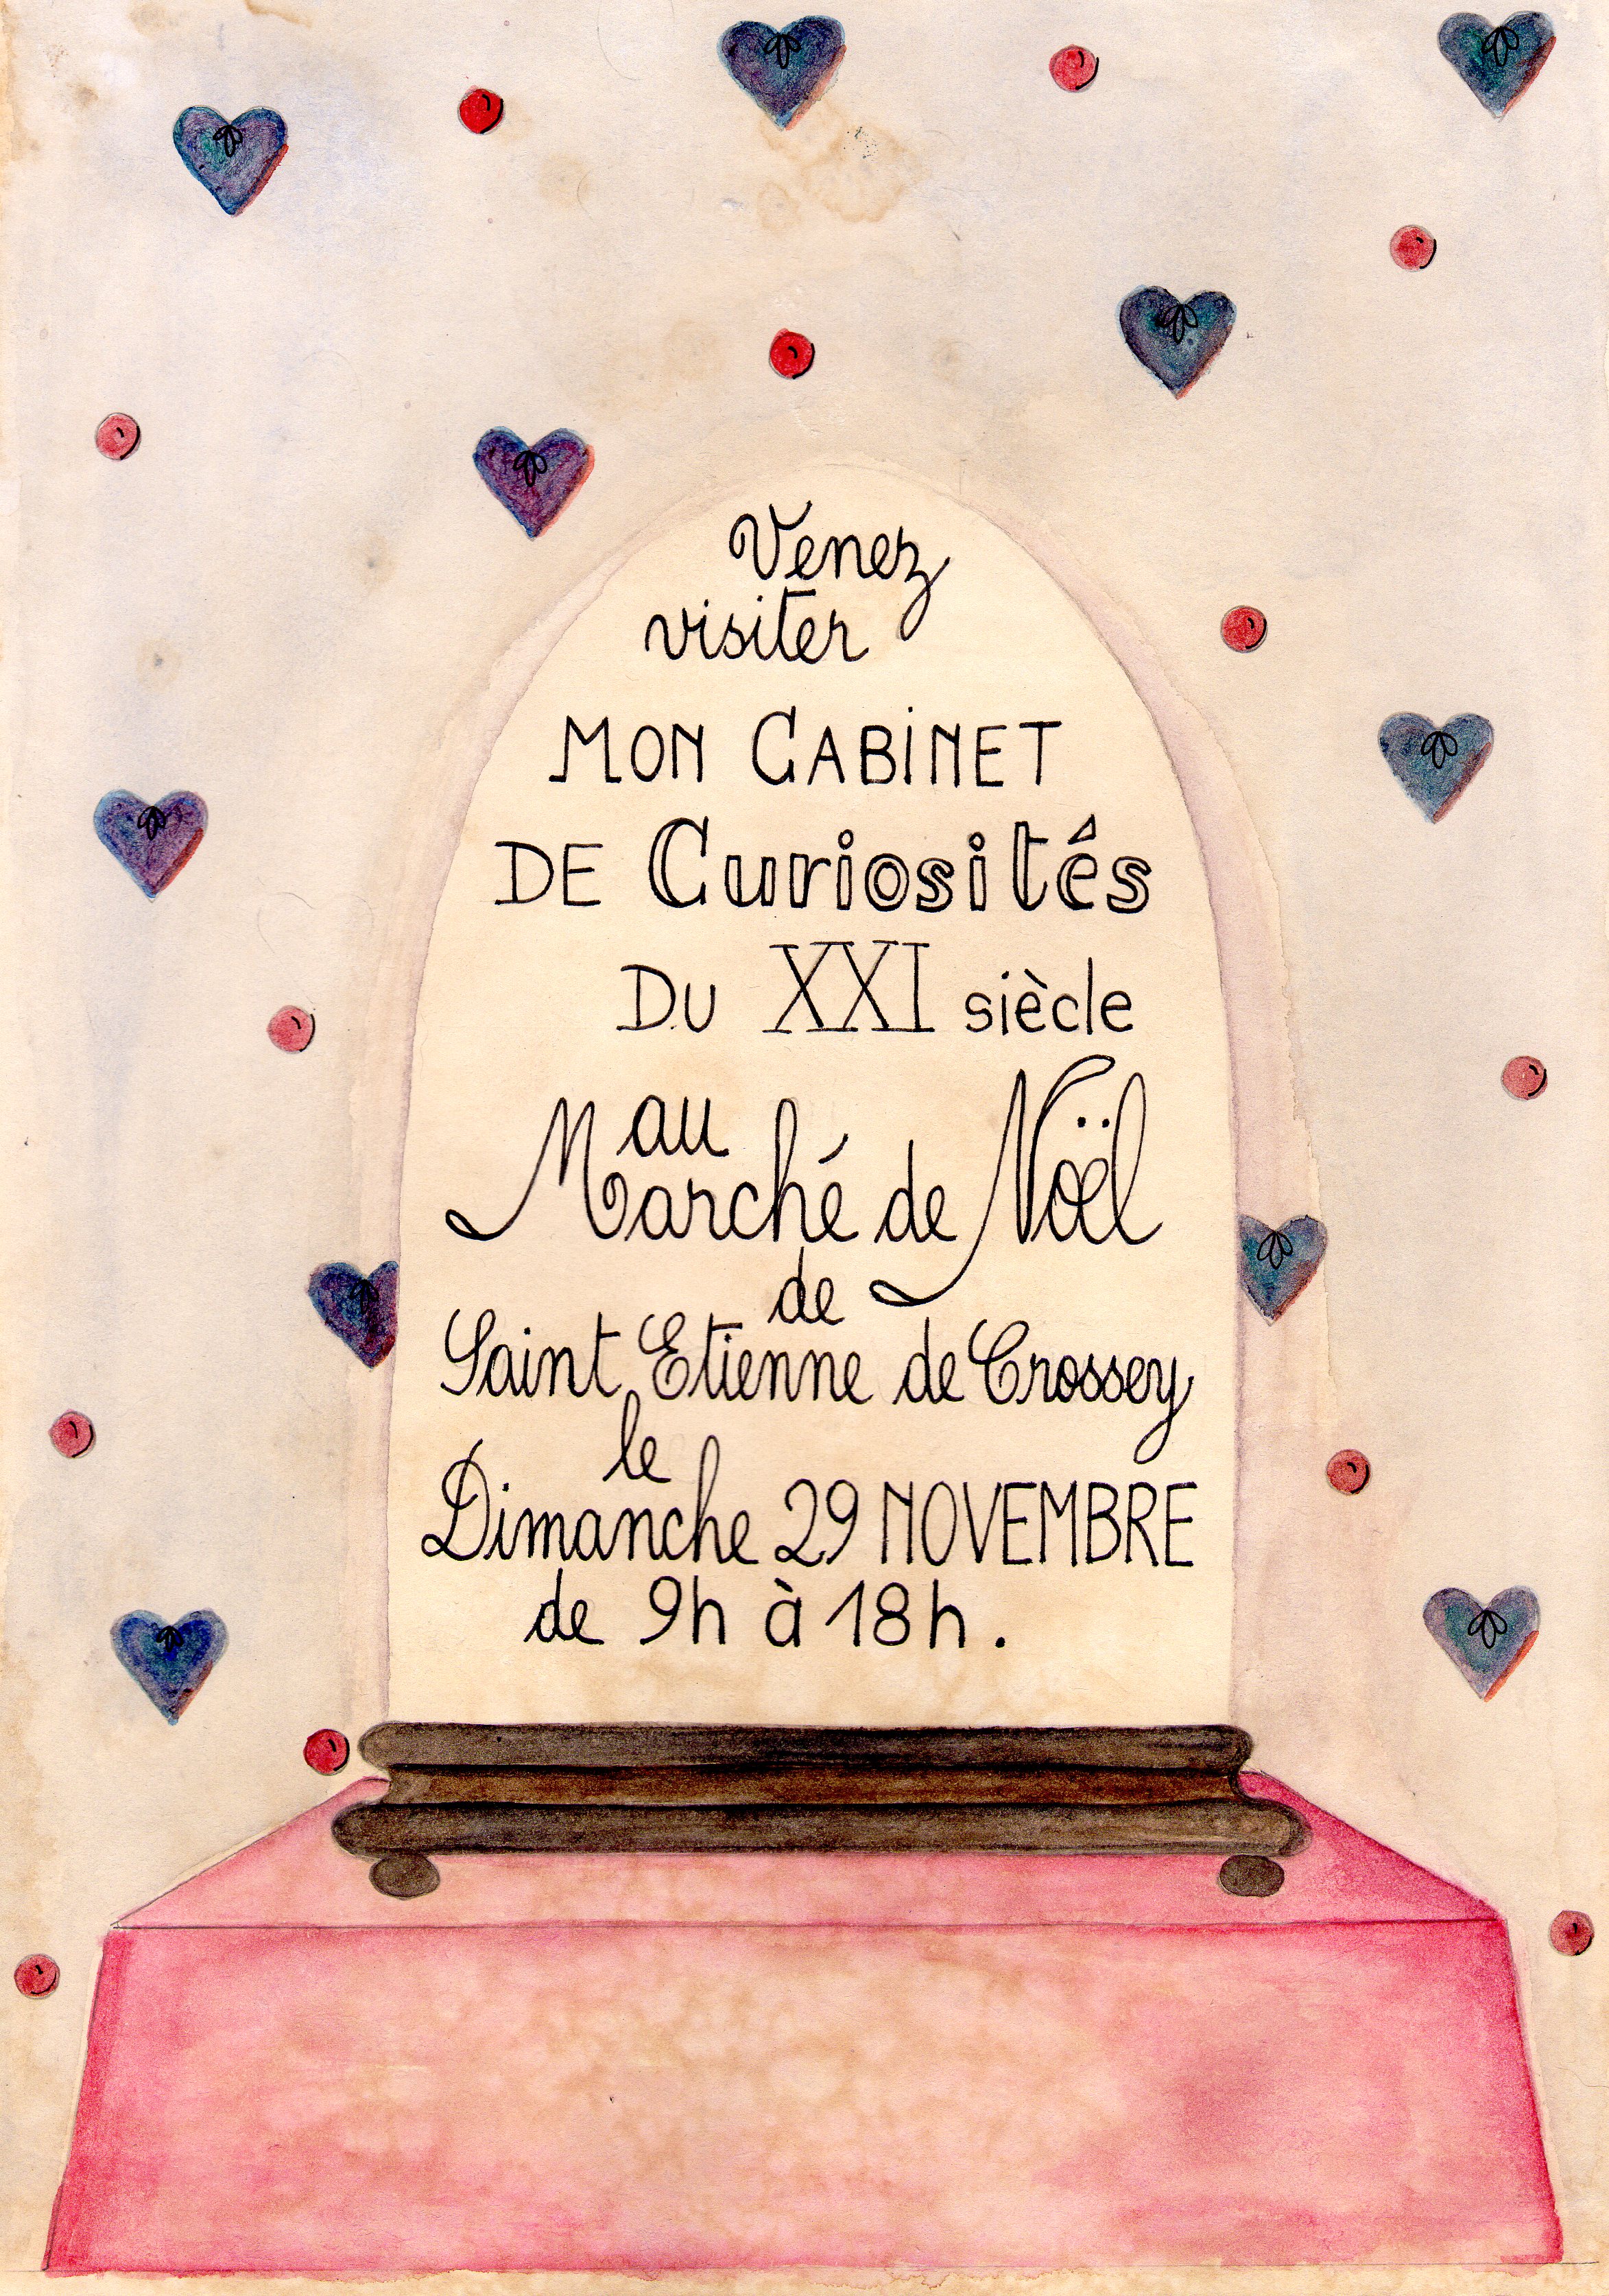 Venez
visiter
MON CABINET
DE Curiosités
DU XXI siècle
au
Marché de Noël
de
Saint Etienne de Crossey
le
Dimanche 29 NOVEMBRE
de 9h à 18h.